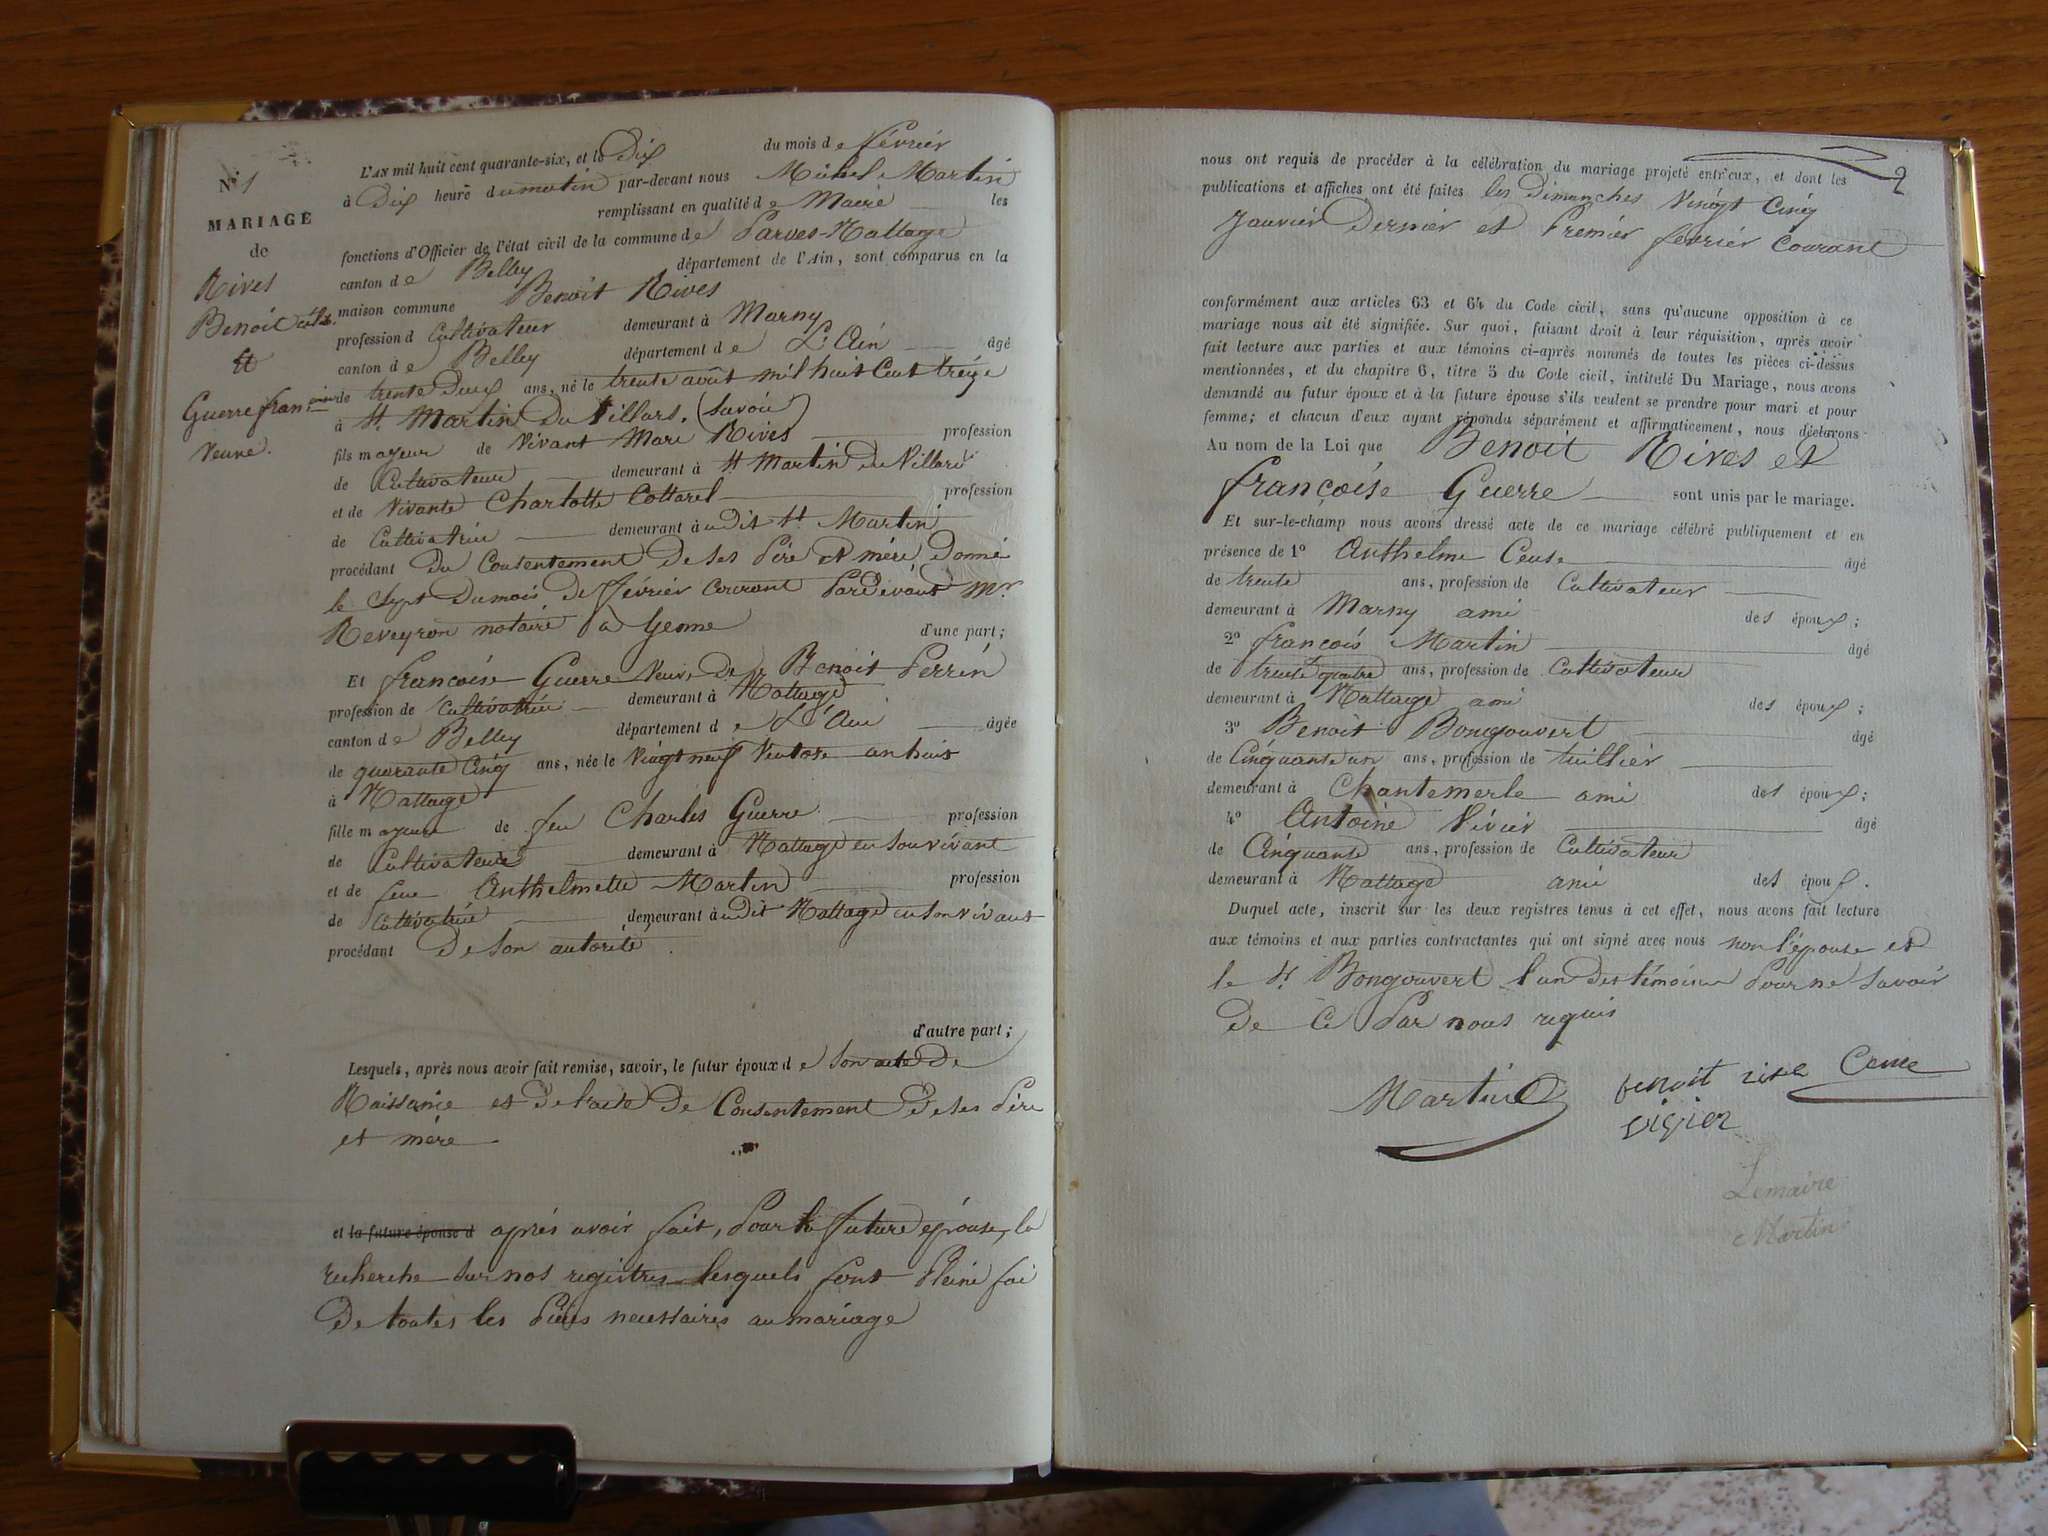 N° 1
MARIAGE
de
Rives
Benoit célib.
et
Guerre fran.çoise
veuve.
L'AN mil huit cent quarante-six, et le Dix du mois de février
à Dix heure du matin par-devant nous Michel Martin
remplissant en qualité de Maire les
fonctions d'Officier de l'état civil de la commune de Parves-Nattage
canton de Belley département de l'Ain, sont comparus en la
maison commune Benoit Rives
profession d cultivateur demeurant à Marny
canton de Belley département de L'Ain âgé
de trente Deux ans, né le trente août mil huit Cent treize
à St. Martin Du Villars. (Savoie)
fils majeur de vivant Mari Rives profession
de Cultivateur demeurant à St Martin du Villard
et de vivante Charlotte Cottarel profession
de Cultivatrice demeurant à udit St Martin
procédant du Consentement De ses Père et mère, Donné
le Sept Du mois De février courant Pardevant Mr.
Reveyron notaire a Yenne d'une part;
Et françoise Guerre veuve De Benoit Perrin
profession de cultivatrice demeurant à Nattage
canton de Belley département de L'Ain âgée
de quarante Cinq ans, née le Vingt neuf Ventose an huit
à Nattage
fille majeure de feu Charles Guerre profession
de Cultivateur demeurant à Nattage en son vivant
et de feue Anthelmette Martin profession
de Cultivatrice demeurant à udit Nattage en son vivant
procédant De son autorité.
d'autre part;
Lesquels, après nous avoir fait remise, savoir, le futur époux de son acte De
Naissance et De l'acte De Consentement De ses Père
et mère
et la future épouse d après avoir fait, Pour la future épouse, la
recherche sur nos registres lesquels font Pleine foi
De toutes les Pièces necessaires au mariage
2
nous ont requis de procéder à la célébration du mariage projeté entr'eux, et dont les
publications et affiches ont été faites les Dimanches Vingt Cinq
Janvier Dernier et Premier février Courant
conformément aux articles 63 et 64 du Code civil, sans qu'aucune opposition à ce
mariage nous ait été signifiée. Sur quoi, faisant droit à leur réquisition, après avoir
fait lecture aux parties et aux témoins ci-après nommés de toutes les pièces ci-dessus
mentionnées, et du chapitre 6, titre 5 du Code civil, intitulé Du Mariage, nous avons
demandé au futur époux et à la future épouse s'ils veulent se prendre pour mari et pour
femme; et chacun d'eux ayant répondu séparément et affirmativement, nous déclarons
Au nom de la Loi que Benoit Rives et
françoise Guerre sont unis par le mariage.
Et sur-le-champ nous avons dressé acte de ce mariage célébré publiquement et en
présence de 1° Anthelme Ceuse âgé
de trente ans, profession de Cultivateur
demeurant à Marny ami des époux;
2° françois Martin âgé
de trente quatre ans, profession de Cultivateur
demeurant à Nattage ami des époux;
3° Benoit Bongouvert âgé
de Cinquante un ans, profession de tuillier
demeurant à Chantemerle ami des époux;
4° Antoine Vivier âgé
de Cinquante ans, profession de Cultivateur
demeurant à Nattage ami des époux.
Duquel acte, inscrit sur les deux registres tenus à cet effet, nous avons fait lecture
aux témoins et aux parties contractantes qui ont signé avec nous non l'épouse et
le Sr. Bongouvert l'un Des témoins Pour ne Savoir
De Ce Par nous requis
Martin benoit rive Ceuse
vivier
Lemaire
Martin